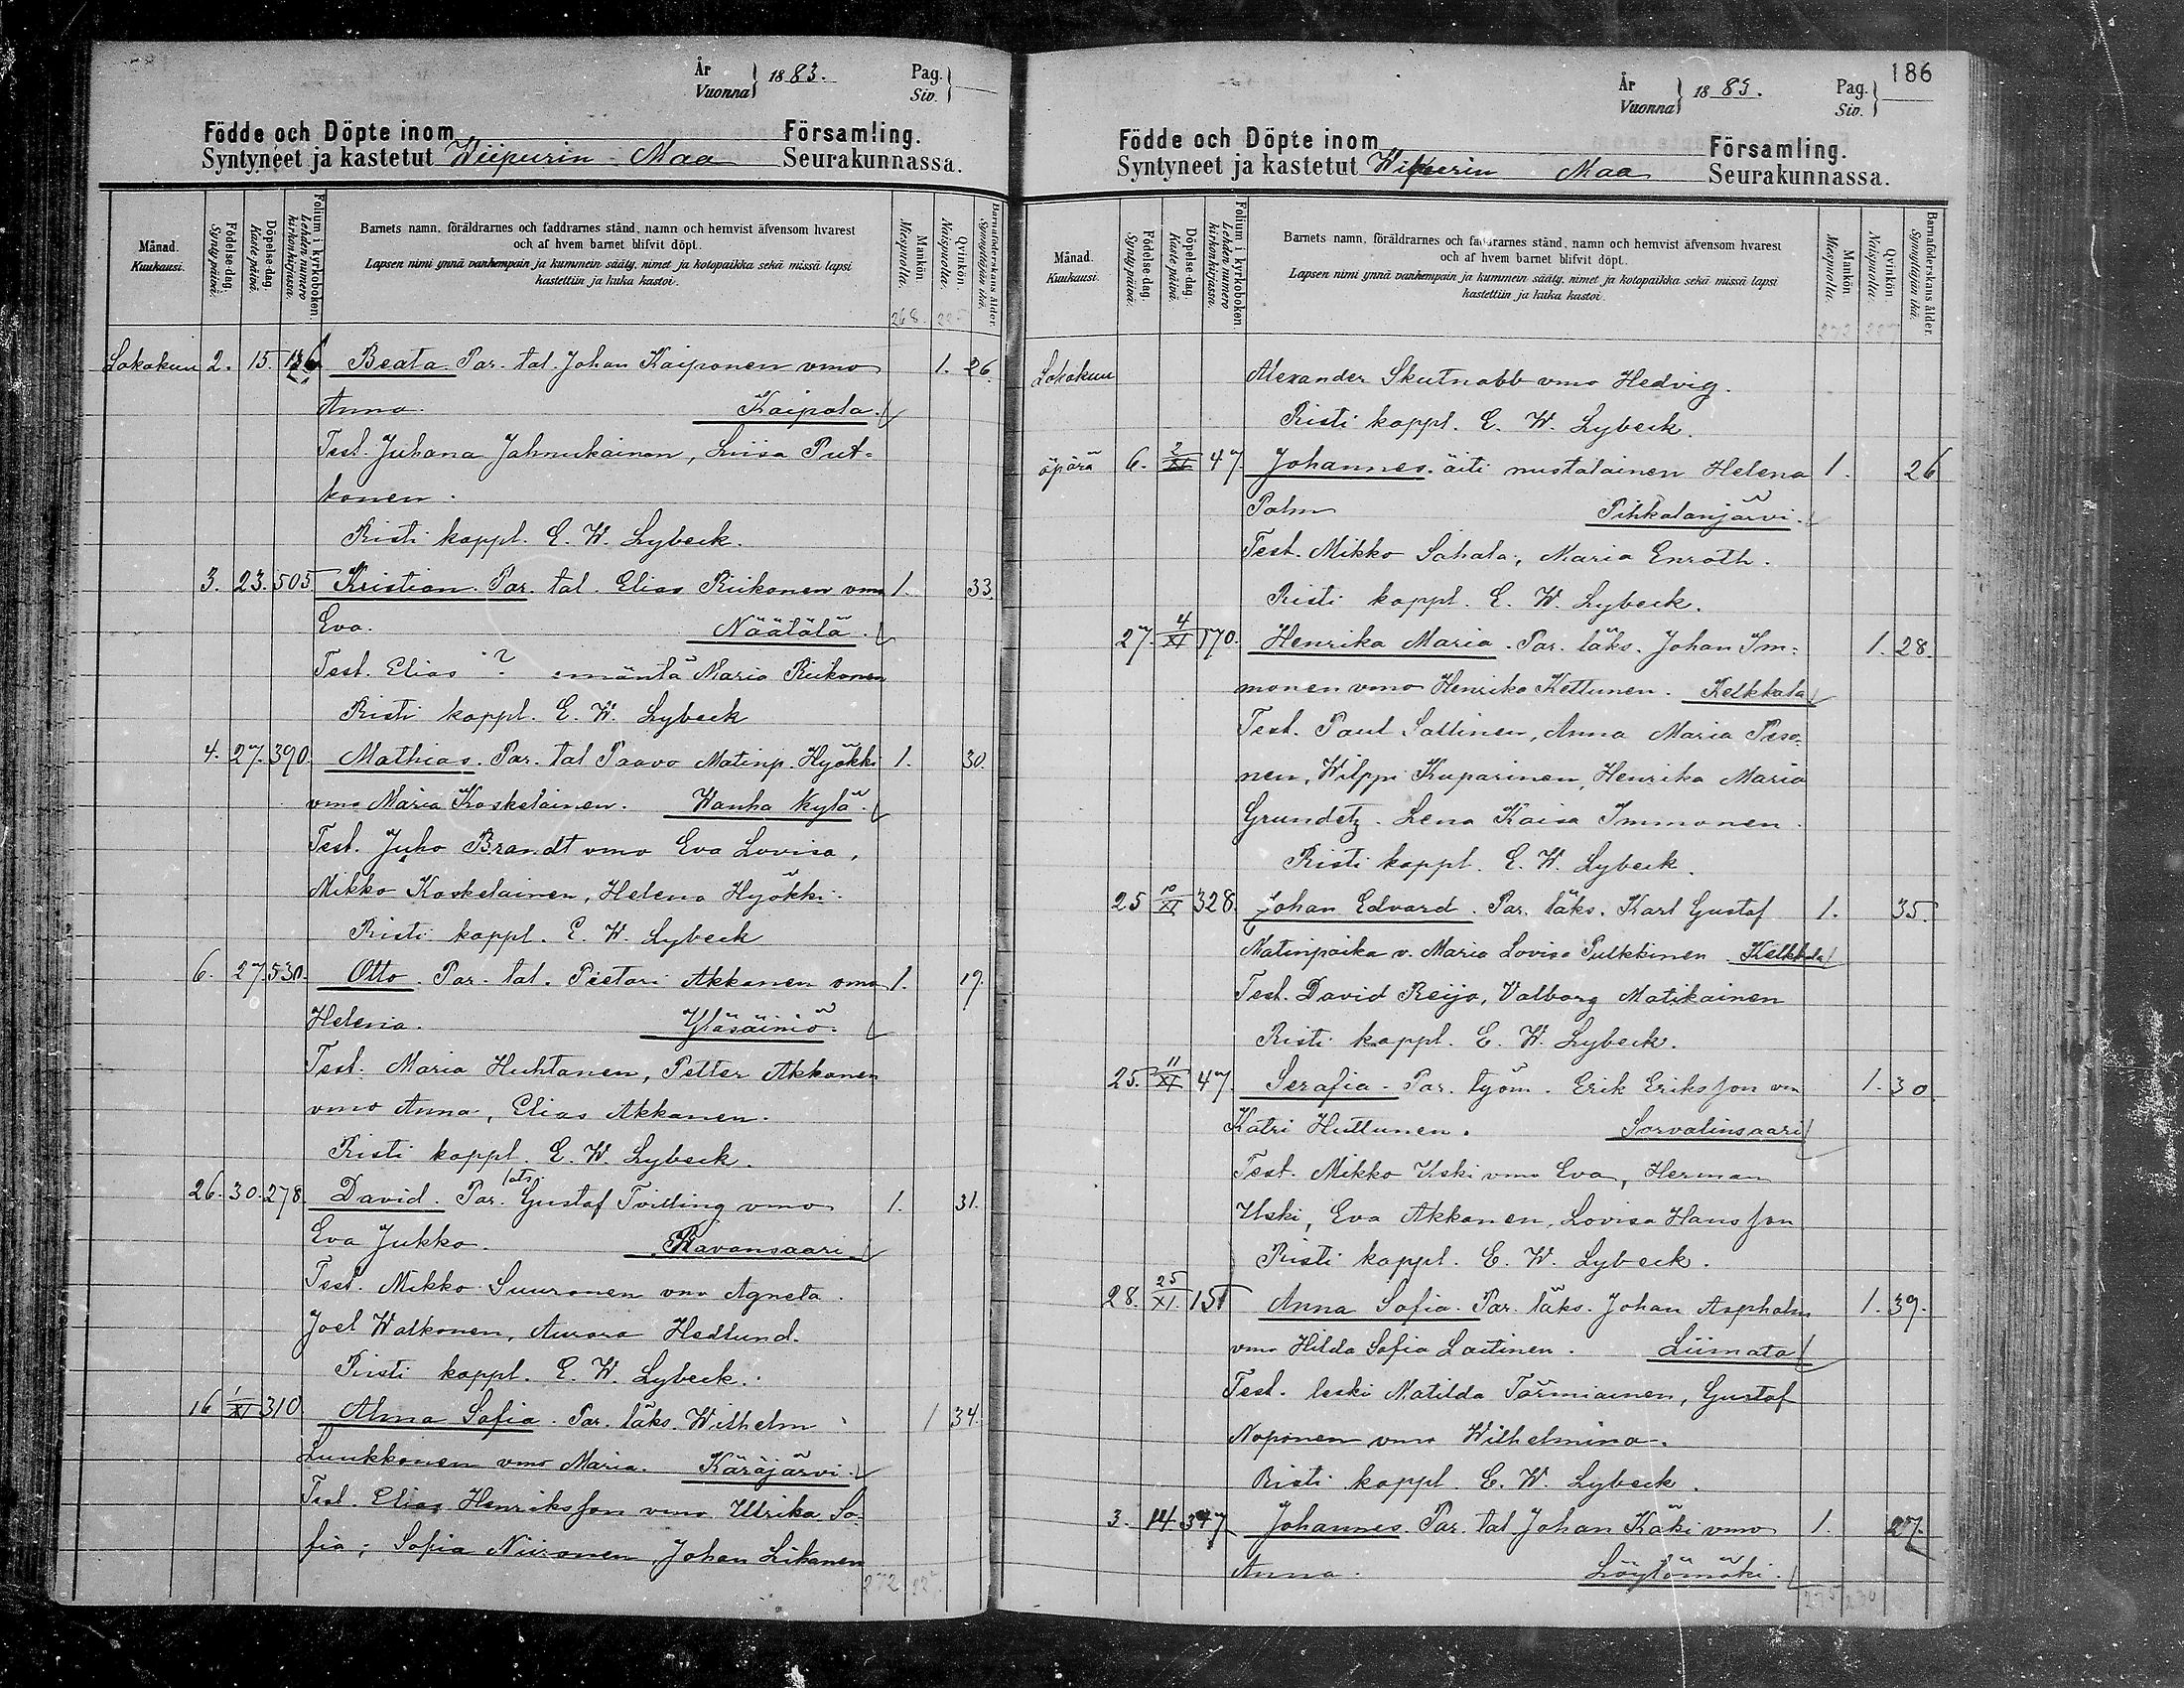 År
Vuonna } 1883. Pag.
Siv. }
Födde och Döpte inom Församling.
Syntyneet ja kastetut Wiipurin Maa Seurakunnassa.
Månad.
Kuukausi.
Födelse-dag.
Synty päivä.
Döpelse-dag.
Kaste päivä.
Folium i kyrkoboken.
Lehden numero kirkonkirjassa.
Barnets namn, föräldrarnes och faddrarnes stånd, namn och hemvist äfvensom hvarest
och af hvem barnet blifvit döpt.
Lapsen nimi ynnä vanhempain ja kummein sääty, nimet ja kotopaikka sekä missä lapsi
kastettiin ja kuka kastoi.
Mankön.
Miespuolta.
Qvinkön.
Naispuolta.
Barnaföderskans ålder.
Synnyttäjän ikä.
268.
Lokakuu 2. 15. Beata. Par. tal. Johan Kaiponen vmo 1. 26.
Anna. Kaipola.
Test. Juhana Jahnukainen, Liisa Put=
konen.
Risti kappl. E. W. Lybeck.
3. 23. 505 Kristian. Par. tal. Elias Riikonen vmo 1. 33.
Eva. Näätälä.
Test. Elias ? emäntä Maria Riikonen
Risti kappl. E. W. Lybeck
4. 27. 390. Mathias. Par. tal Paavo Matinp. Hyökki 1. 30.
vmo Maria Koskelainen. Wanha kylä.
Test. Juho Brandt vmo Eva Lovisa,
Mikko Koskelainen, Helena Hyökki.
Risti kappl. E. W. Lybeck
6. 27. 530. Otto. Par. tal. Pietari Akkanen vmo 1. 19.
Helena. Yläsäiniö.
Test. Maria Huhtanen, Petter Akkanen
vmo Anna, Elias Akkanen.
Risti kappl. E. W. Lybeck.
26. 30. 278. David. Par. Gustaf Tvilling vmo 1. 31.
Eva Jukko. Ravansaari.
Test. Mikko Suuronen vmo Agneta.
Joel Walkonen, Aurora Hedlund.
Risti kappl. E. W. Lybeck.
16 1/XI 310. Alma Sofia. Par. läks. Wilhelm 1 34.
Luukkonen vmo Maria. Käräjärvi.
Test. Elias Henriksson vmo Ulrika So=
fia; Sofia Niironen, Johan Likanen
272
År
Vuonna } 1883. Pag.
Siv. } 186
Födde och Döpte inom Församling.
Syntyneet ja kastetut Wiipurin Maa Seurakunnassa.
Månad.
Kuukausi.
Födelse-dag.
Synty päivä.
Döpelse-dag.
Kaste päivä.
Folium i kyrkoboken.
Lehden numero kirkonkirjassa.
Barnets namn, föräldrarnes och faddrarnes stånd, namn och hemvist äfvensom hvarest
och af hvem barnet blifvit döpt.
Lapsen nimi ynnä vanhempain ja kummein sääty, nimet ja kotopaikka sekä missä lapsi
kastettiin ja kuka kastoi.
Mankön
Miespuolta.
Qvinkön
Naispuolta.
Barnaföderskans ålder.
Synnyttäjän ikä.
Lokakuu Alexander Skutnabb vmo Hedvig.
Risti kappl. E. W. Lybeck.
äpärä 6. 2/XI 47. Johannes. äiti mustalainen Helena 1. 26
Palm Pihkalanjärvi.
Test. Mikko Sahala, Maria Enroth.
Risti kappl. E. W. Lybeck.
27. 4/XI 570. Henrika Maria. Par. läks. Johan Im= 1. 28.
monen vmo Henrika Kettunen. Kelkkala
Test. Paul Sallinen, Anna Maria Peso=
nen, Wilppi Kuparinen, Henrika Maria
Grundetz. Lena Kaisa Immonen.
Risti kappl. E. W. Lybeck.
25 10/XI 328. Johan Edvard. Par. läks. Karl Gustaf 1. 35.
Matinpoika v. Maria Lovisa Pulkkinen. Kelkkala
Test. David Reijo, Valborg Matikainen
Risti kappl. E. W. Lybeck.
25. 11/XI 47. Serafia. Par. työm. Erik Eriksson vm 1. 30
Katri Huttunen. Sorvalinsaari
Test. Mikko Uski vmo Eva, Herman
Uski, Eva Akkanen, Lovisa Hansson
Risti kappl. E. W. Lybeck.
28. 25/XI 151 Anna Sofia. Par. läks. Johan Aspholm 1. 39.
vmo Hilda Sofia Laitinen. Liimata
Test. leski Matilda Törmiainen, Gustaf
Noponen vmo Wilhelmina.
Risti kappl. E. W. Lybeck.
3. 14. 347 Johannes. Par. tal Johan Käki vmo 1. 27.
Anna. Löytömäki.